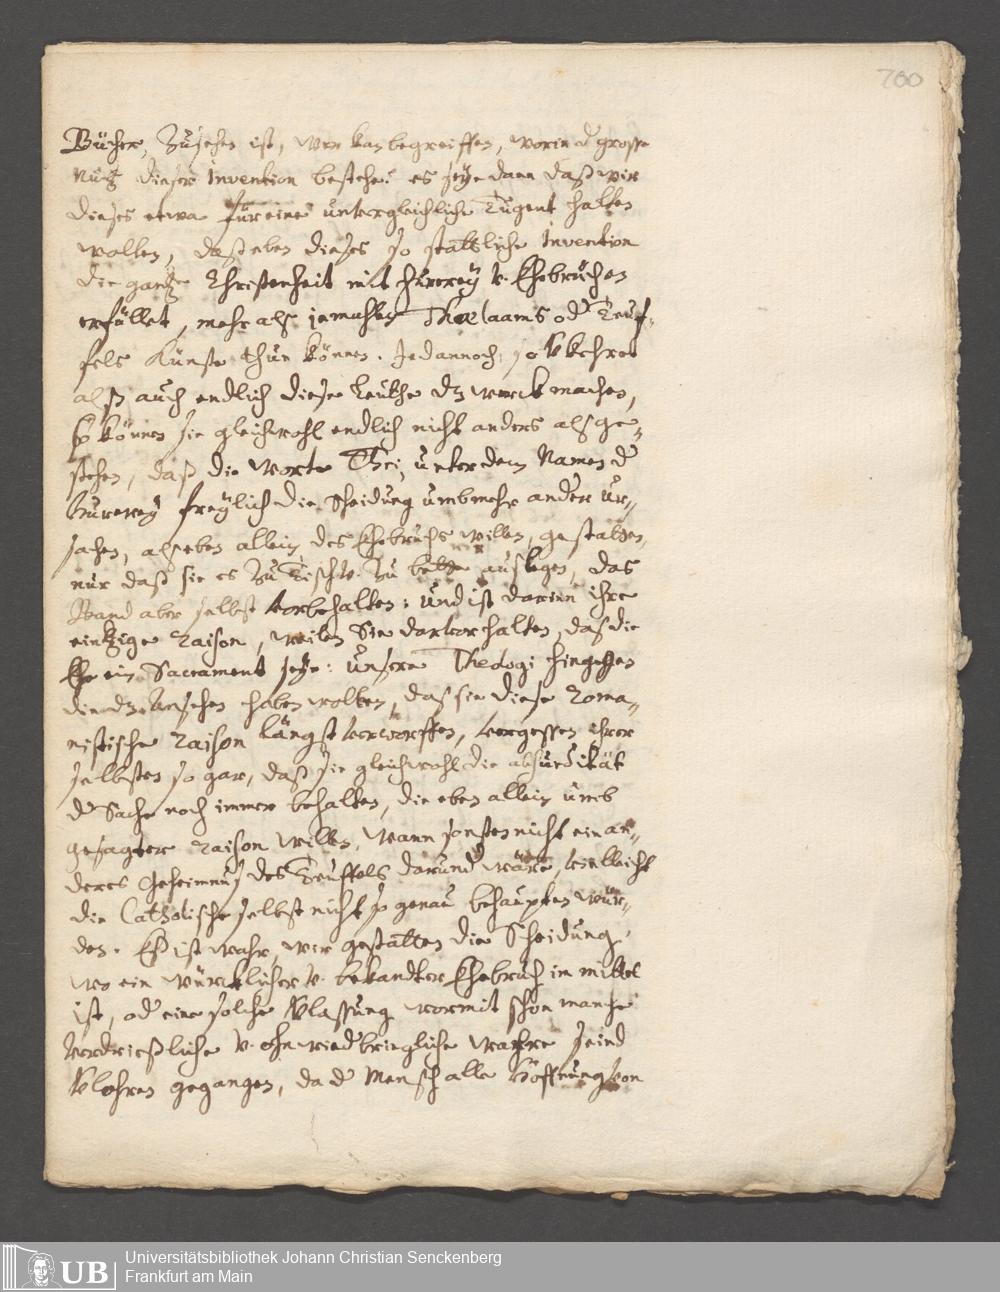 700
Bücher, zusehen ist, wer kan begreiffen, worin d' grosse
Nutz dieser Invention bestehe? es seye dann daß wir
dieses etwa für eine untergleichliche Tugent halten
wollen, daß eben dieses so stattliche Invention
die gantze Christenheit mit Hurerey v. Ehebrüchen
erfüllet, mehr als jemahls Thalaams od' Teuf-
fels Künste thun können. Jedannoch, so Vkehret
alß auch endlich diese Leuthe dz werck machen,
so können sie gleichwohl endlich nicht anders als ge-
stehen, daß die Worte Chri, unter dem Namen d'
Hurerey freylich die Scheidung umb mehr ander Ur-
sachen, als eben allein des Ehebruchs willen, gestatten,
nur daß sie es zu Tisch v. zu bette auslegen, das
Band aber selbst vorbehalten: und ist darinn ihre
eintzige raison, weilen Sie darvor halten, daß die
Ehe ein Sacrament seye: Unsere Theologi hingegen
die dz Ansehen haben wolten, daß sie diese Roma-
nistische raison längst verworffen, vergessen ihrer
selbsten so gar, daß sie gleichwohl die absurdität
d' Sache noch immer behalten, die eben allein umb
gesagter raison willen, wann sonsten nicht ein an-
deres Geheimnus des Teuffels darund' wäre, vielleicht
die Catholische selbst nicht so genau behaupten wür-
den. Eß ist wahr, wir gestatten die Scheidung,
wo ein würcklicher v. bekandter Ehebruch im mittel
ist, od' eine solche Vlassung wormit schon manche
verdrießliche v. ohnwiederbringliche Jahre seind
Vlohren gegangen, da d' Mensch alle Hoffnung von
UB
Universitätsbibliothek Johann Christian Senckenberg
Frankfurt am Main